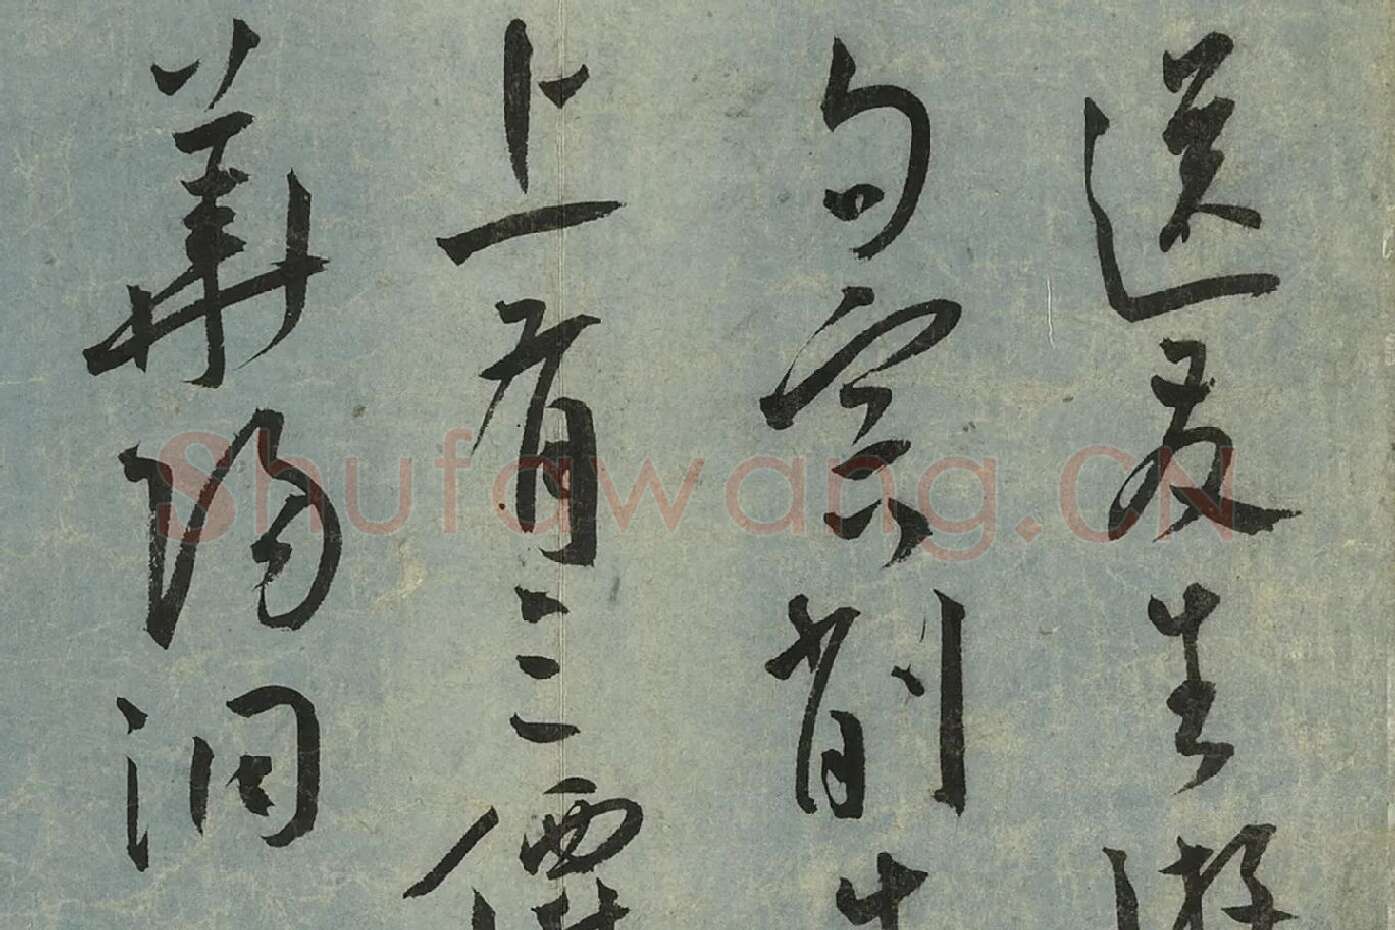 送友生游
句容削
上有三僊
華陽洞
Shufawang.CN